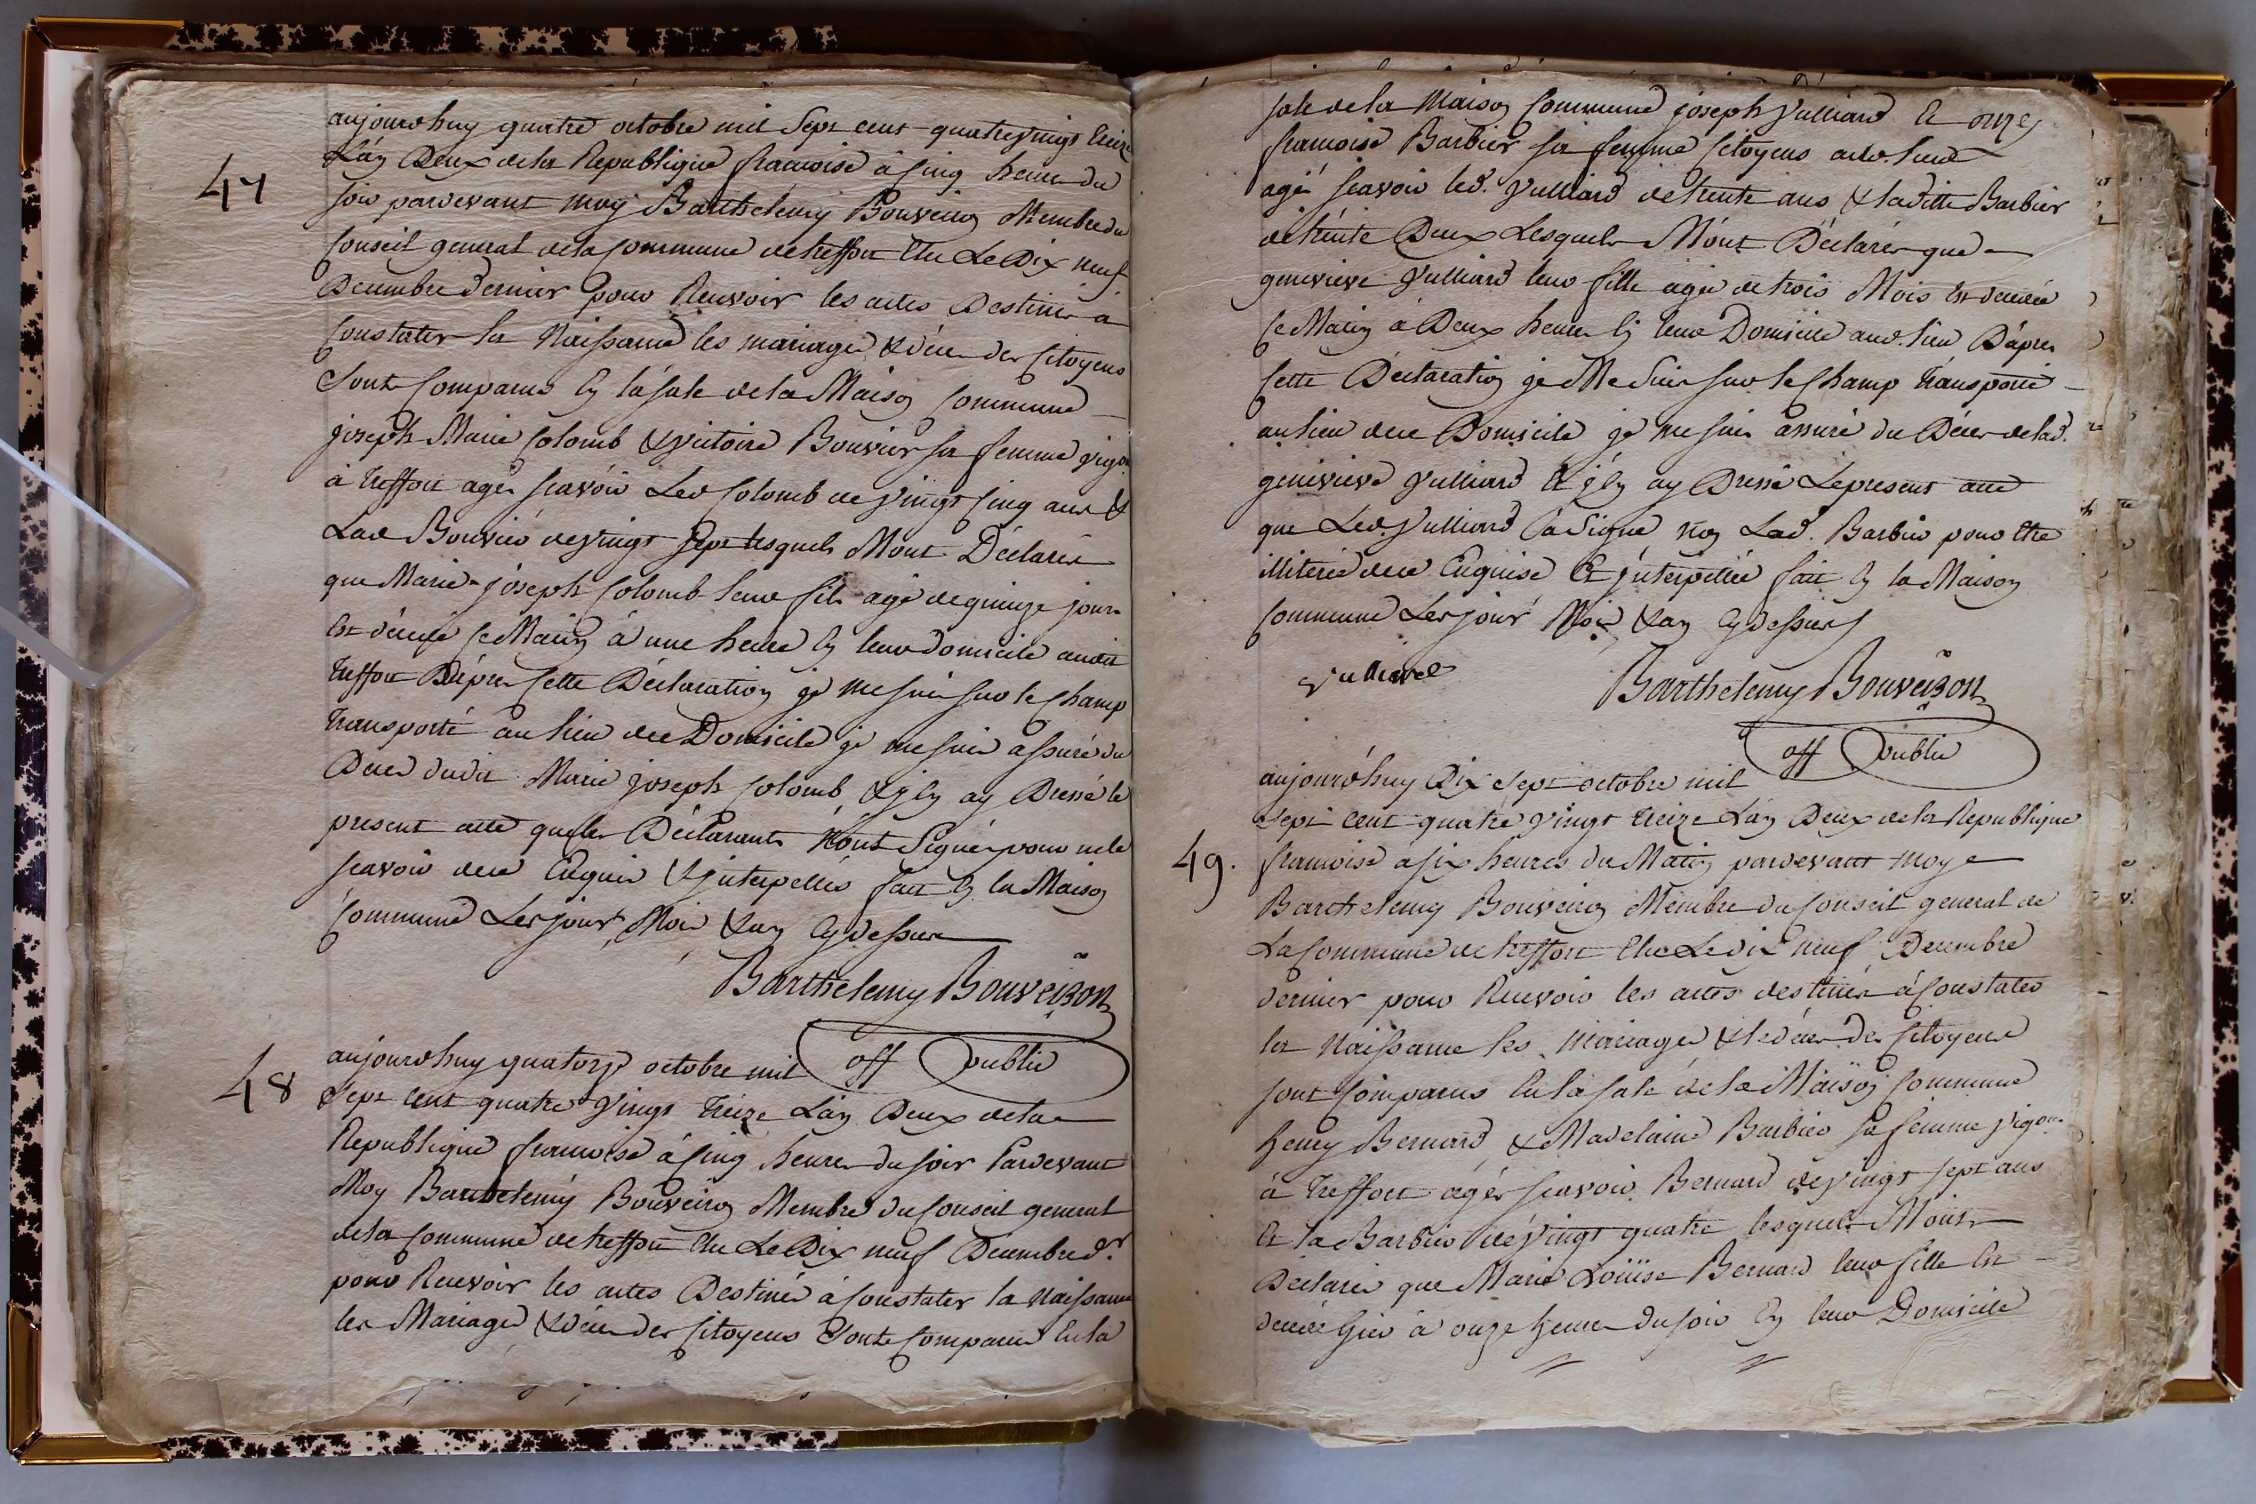 47
aujourdhuy quatre octobre mil Sept cent quatrevingt treize
L'an Deux dela Republique francoise à cinq heures du
soir pardevant moy Barthelemy Bouveiron Membre du
Conseil general dela commune de treffort Elu Le Dix neuf
Decembre dernier pour Recevoir les actes Destinés à
Constater la Naissance les mariages & décès des Citoyens
Sont Comparus En la sale de la Maison Commune
joseph Marie Colomb & victoire Bouvier sa femme
à treffort agés scavoir Led Colomb de vingt cinq ans &
Lad Bouvier de vingt sept lesquels M'ont Déclarés
que Marie-joseph Colomb leur fils agé de quinze jours
Est décédé ce Matin à une heure En leur domicile audit
treffort D'après cette Déclaration je me suis sur le champ
transporté au lieu de ce Domicile je me suis assuré du
Deces dudit Marie joseph Colomb & j'En ay Dressé le
present acte que les Déclarants N'ont Signés pour ne le
scavoir de ce Enquis & jnterpellés fait En la Maison
Commune Les jour Mois & an Cy dessus
Barthelemy Bouveiron
off public
48
aujourdhuy quatorze octobre mil
Sept cent quatre vingt treize L'an Deux dela
Republique francoise à cinq heures du soir Pardevant
Moy Barthelemy Bouveiron Membre du Conseil general
dela Commune de treffort Elu Le Dix neuf Decembre dr
pour Recevoir les actes Destinés à Constater la Naissance
les Mariages & décès des Citoyens Sont Comparus En la
sale dela Maison Commune joseph vulliard &
francoise Barbier sa femme Citoyens aud. lieu
agé scavoir led. vulliard de trente ans & ladite Barbier
de trente Deux Lesquels M'ont Déclarés que
genevieve vulliard leur fille agée de trois Mois Est décédée
ce Matin à Deux heures En leur Domicile aud. lieu D'après
Cette Déclaration je Me Suis sur le Champ transporté
au lieu de ce Domicile je me suis assuré du Déces de lad.
genevieve vulliard & j'En ay Dressé Le present acte
que Led. vulliard a Signé non Lad. Barbier pour Etre
illiterée de ce Enquise Et jnterpellée fait En la Maison
Commune Les jour Mois & an Cy dessus
vulliard
Barthelemy Bouveiron
off public
49.
aujourdhuy Dix Sept octobre mil
Sept cent quatre vingt treize L'an Deux dela Republique
francoise à six heures du Matin pardevant moy
Barthelemy Bouveiron Membre du Conseil general de
La Commune de treffort Elu Le dix neuf Decembre
dernier pour Recevoir les actes destinés à Constater
la Naissance les mariages & le décès des Citoyens
sont Comparus En la sale de la Maison Commune
henry Bernard & Madelaine Barbier sa femme
à treffort agés scavoir Bernard de vingt sept ans
Et la Barbier de vingt quatre lesquels M'ont
Declarés que Marie Loüise Bernard leur fille Est
decedée hier à onze heures du soir En leur Domicile